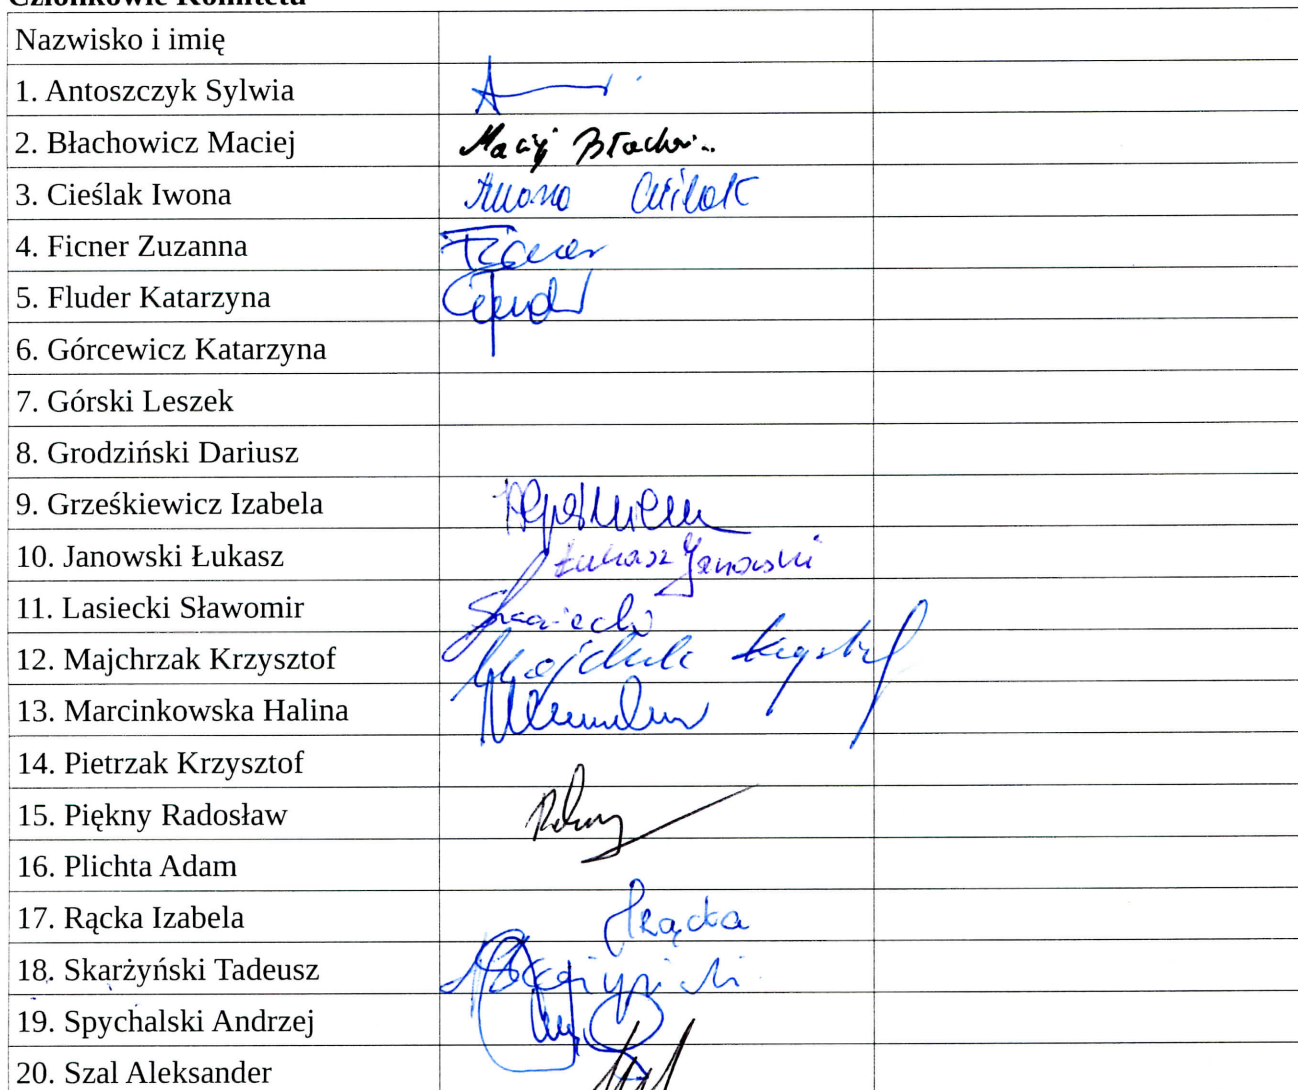 Członkowie Komitetu
Nazwisko i imię
1. Antoszczyk Sylwia
2. Błachowicz Maciej Maciej
3. Cieślak Iwona Iwona Cieślak
4. Ficner Zuzanna
5. Fluder Katarzyna
6. Górcewicz Katarzyna
7. Górski Leszek
8. Grodziński Dariusz
9. Grześkiewicz Izabela
10. Janowski Łukasz Łukasz Janowski
11. Lasiecki Sławomir
12. Majchrzak Krzysztof
13. Marcinkowska Halina
14. Pietrzak Krzysztof
15. Piękny Radosław
16. Plichta Adam
17. Rącka Izabela IRącka
18. Skarżyński Tadeusz
19. Spychalski Andrzej
20. Szal Aleksander